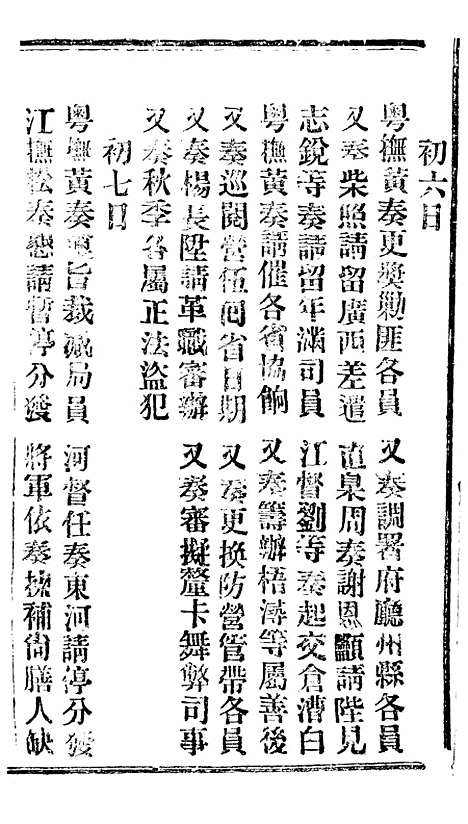 初六日
粵撫黃奏更獎勦匪各員　又奏調署府廳州縣各員
又奏柴照請留廣西差遣　直臬周奏謝恩顳請陛見
志銳等奏請留年滿司員　江督劉等奏起交倉漕白
粵撫黃奏請催各賓協餉　又奏籌辦梧潯等屬善後
又奏巡閱營伍囘省日期　又奏更換防營管帶各員
又奏楊長陞請革職審辦　又奏審擬釐卡舞弊司事
又奏秋季各屬正法盜犯
初七日
粵撫黃奏旨裁減局員　河督任奏東河請停分發
江撫松奏懇請暫停分發　將軍依奏揀補尙膳人缺